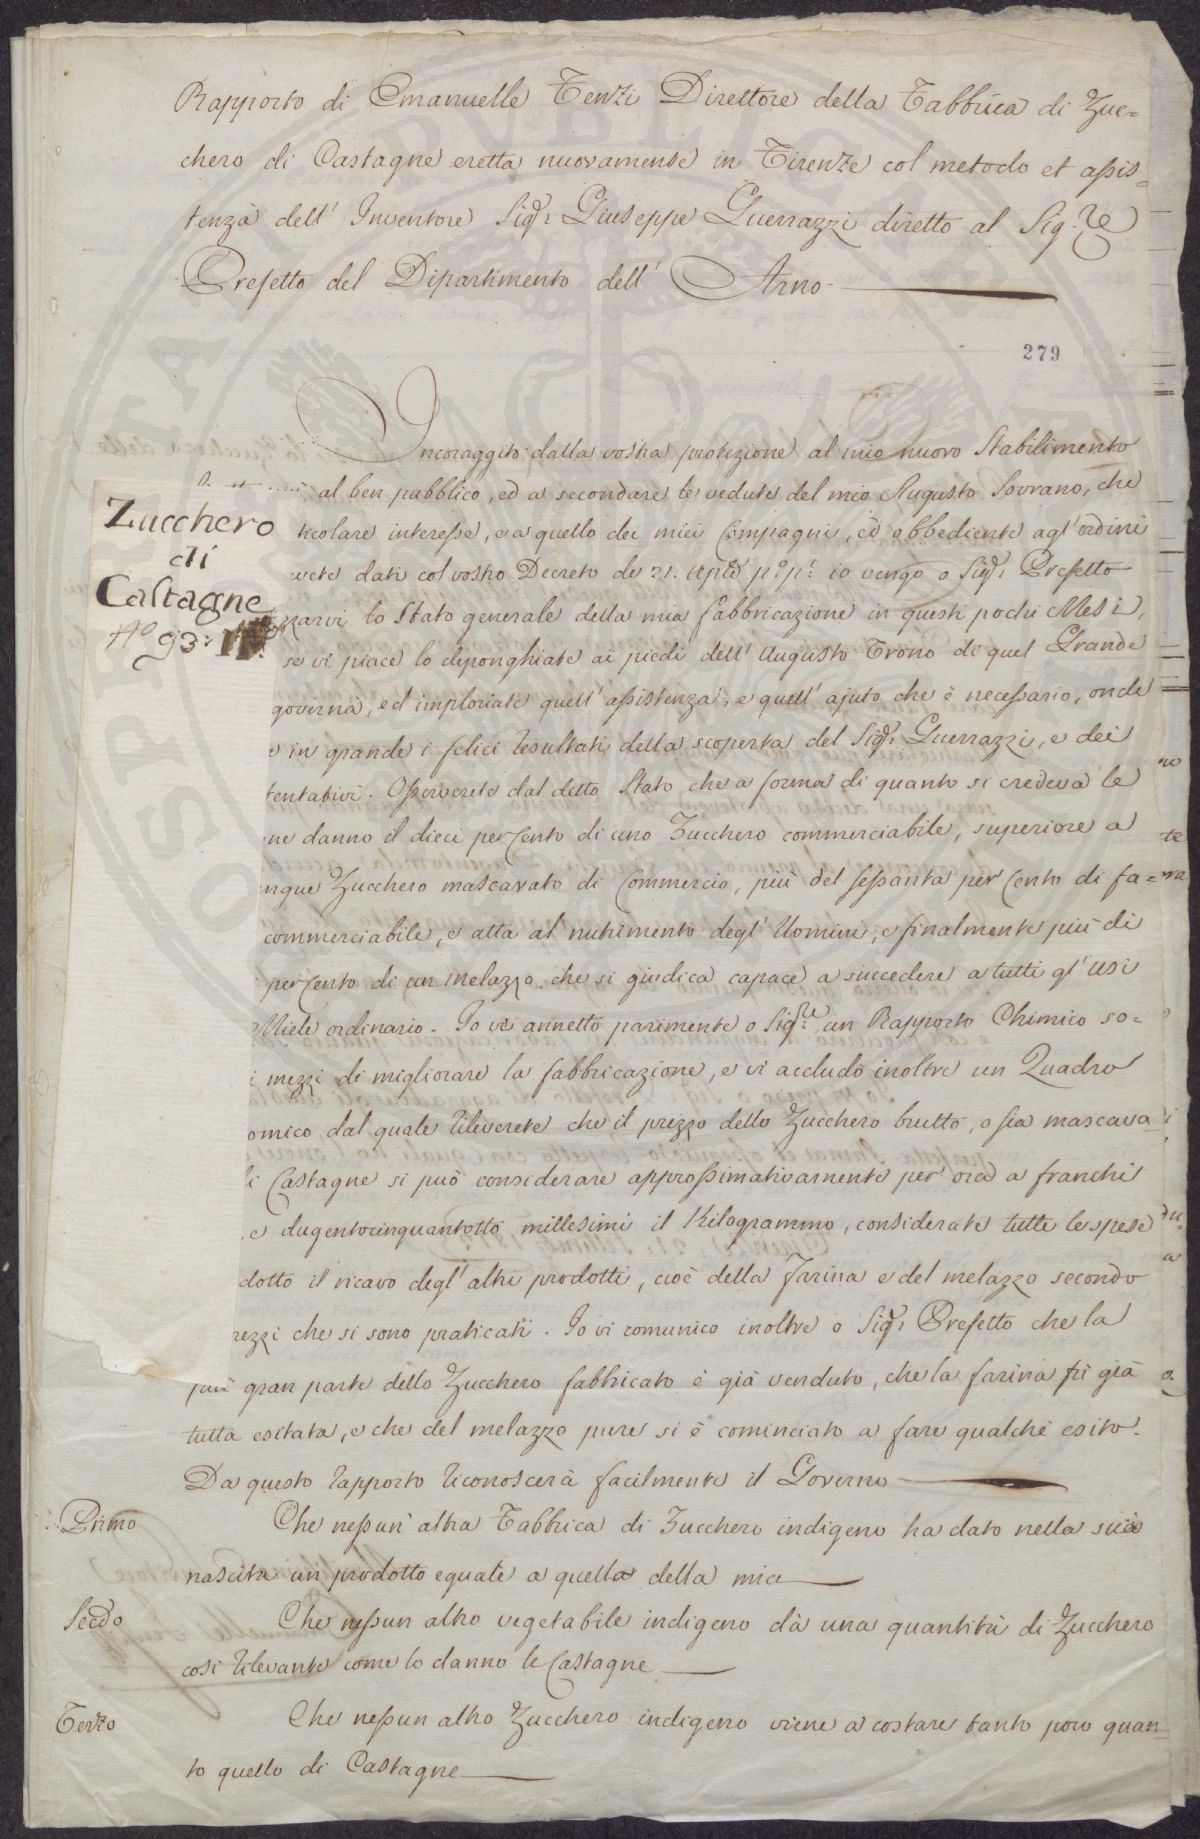 Rapporto di Emanuelle Fenzi Direttore della Fabbrica di Zuc=
chero di Castagne eretta nuovamente in Firenze col metodo et assis=
tenza dell' Inventore Sigr: Giuseppe Guerrazzi diretto al Sig.re
Prefetto del Dipartimento dell' Arno
279
Incoraggito dalla vostra protezione al mio nuovo Stabilimento
al ben pubblico, ed a secondare le vedute del mio Augusto Sovrano, che
ticolare interesse, e a quello dei miei Compagni, ed obbediente agl' ordini
vete dati col vostro Decreto de 21. p:o p:o io vengo o Sigr: Prefetto
zzarvi lo Stato generale della mia fabbricazione in questi pochi Mesi,
se vi piace lo deponghiate ai piedi dell' Augusto Trono di quel Grande
governa, ed imploriate quell' assistenza, e quell' ajuto che è necessario, onde
e in grande i felici resultati della scoperta del Sigr: Guerrazzi, e dei
tentativi. Osserverete dal detto Stato che a forma di quanto si credeva le
ne danno il dieci per Cento di uno Zucchero commerciabile, superiore a
nque Zucchero mascavato di Commercio, più del sessanta per Cento di fa=
commerciabile, e atta al nutrimento degl' Uomini, e finalmente più di
per Cento di un melazzo, che si giudica capace a succedere a tutti gl' usi
Miele ordinario. Io vi annetto parimente o Sigre un Rapporto Chimico so=
i mezzi di migliorare la fabbricazione, e vi accludo inoltre un Quadro
omico dal quale rileverete che il prezzo dello Zucchero brutto, o sia mascava
i Castagne si può considerare approssimativamente per ora a franchi
e dugentocinquantotto millesimi il Kilogrammo, considerate tutte le spese
dotto il ricavo degl' altri prodotti, cioè della Farina e del melazzo secondo
rezzi che si sono praticati. Io vi comunico inoltre o Sigr: Prefetto che la
più gran parte dello Zucchero fabbricato è già venduto, che la farina fù già
tutta esitata, e che del melazzo pure si è cominciato a fare qualche esito.
Da questo rapporto riconoscerà facilmente il Governo
Primo Che nessun' altra Fabbrica di Zucchero indigeno ha dato nella sua
nascita un prodotto eguale a quella della mia
Secdo Che nessun altro vegetabile indigeno dà una quantità di Zucchero
così rilevante come lo danno le Castagne
Terzo Che nessun altro Zucchero indigeno viene a costare tanto poco quan=
to quello di Castagne
Zucchero
di
Castagne
No 93: